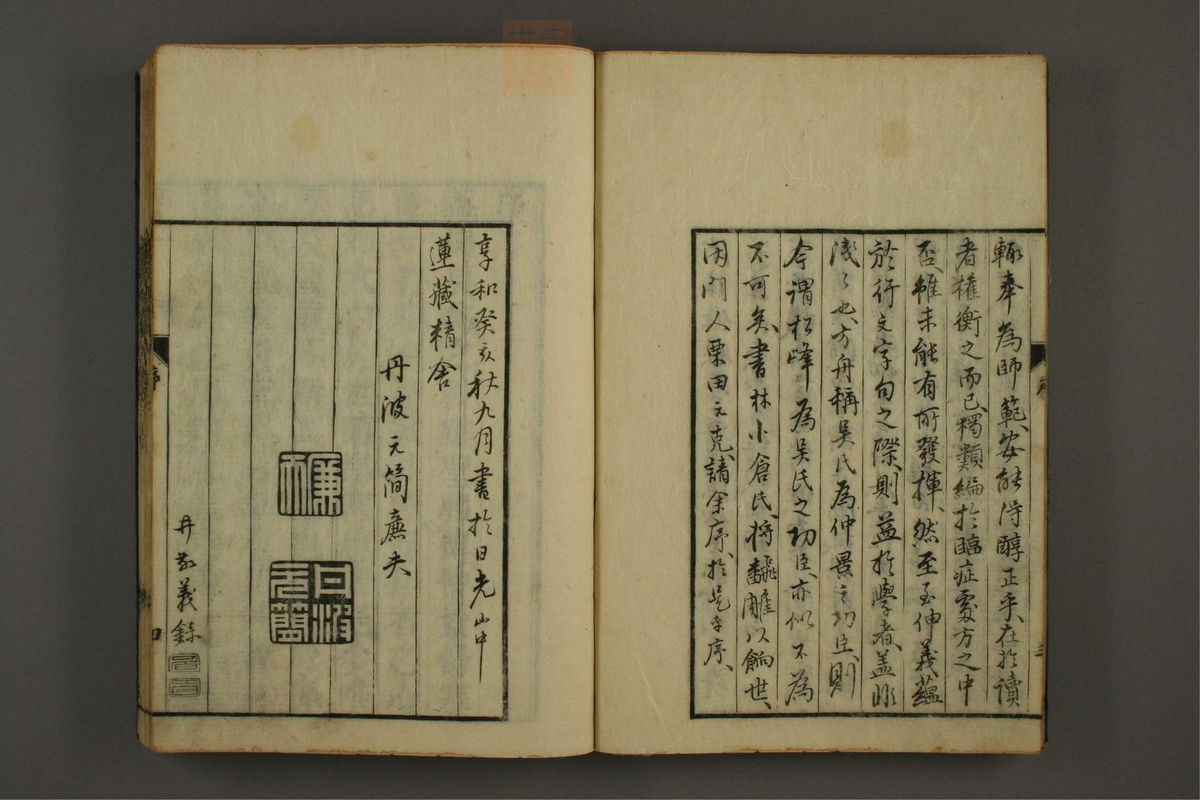 輙奉為師範安能得醇正乎在於讀
者權衡之而已獨類編於臨症處方之中
至雖未能有所發揮然至伸義蘊
於行文字句之際則益於學者蓋非
淺〻也方舟稱吳氏為仲景之功臣則
今謂松峰為吳氏之功臣亦似不為
不可矣書林小倉氏將翻雕以餉世
因門人栗田元克請余序於是乎序
三
享和癸亥秋九月書於日光山中
蓮藏精舍
丹波元簡廉夫
廉夫
丹波元簡
義錄
序
四